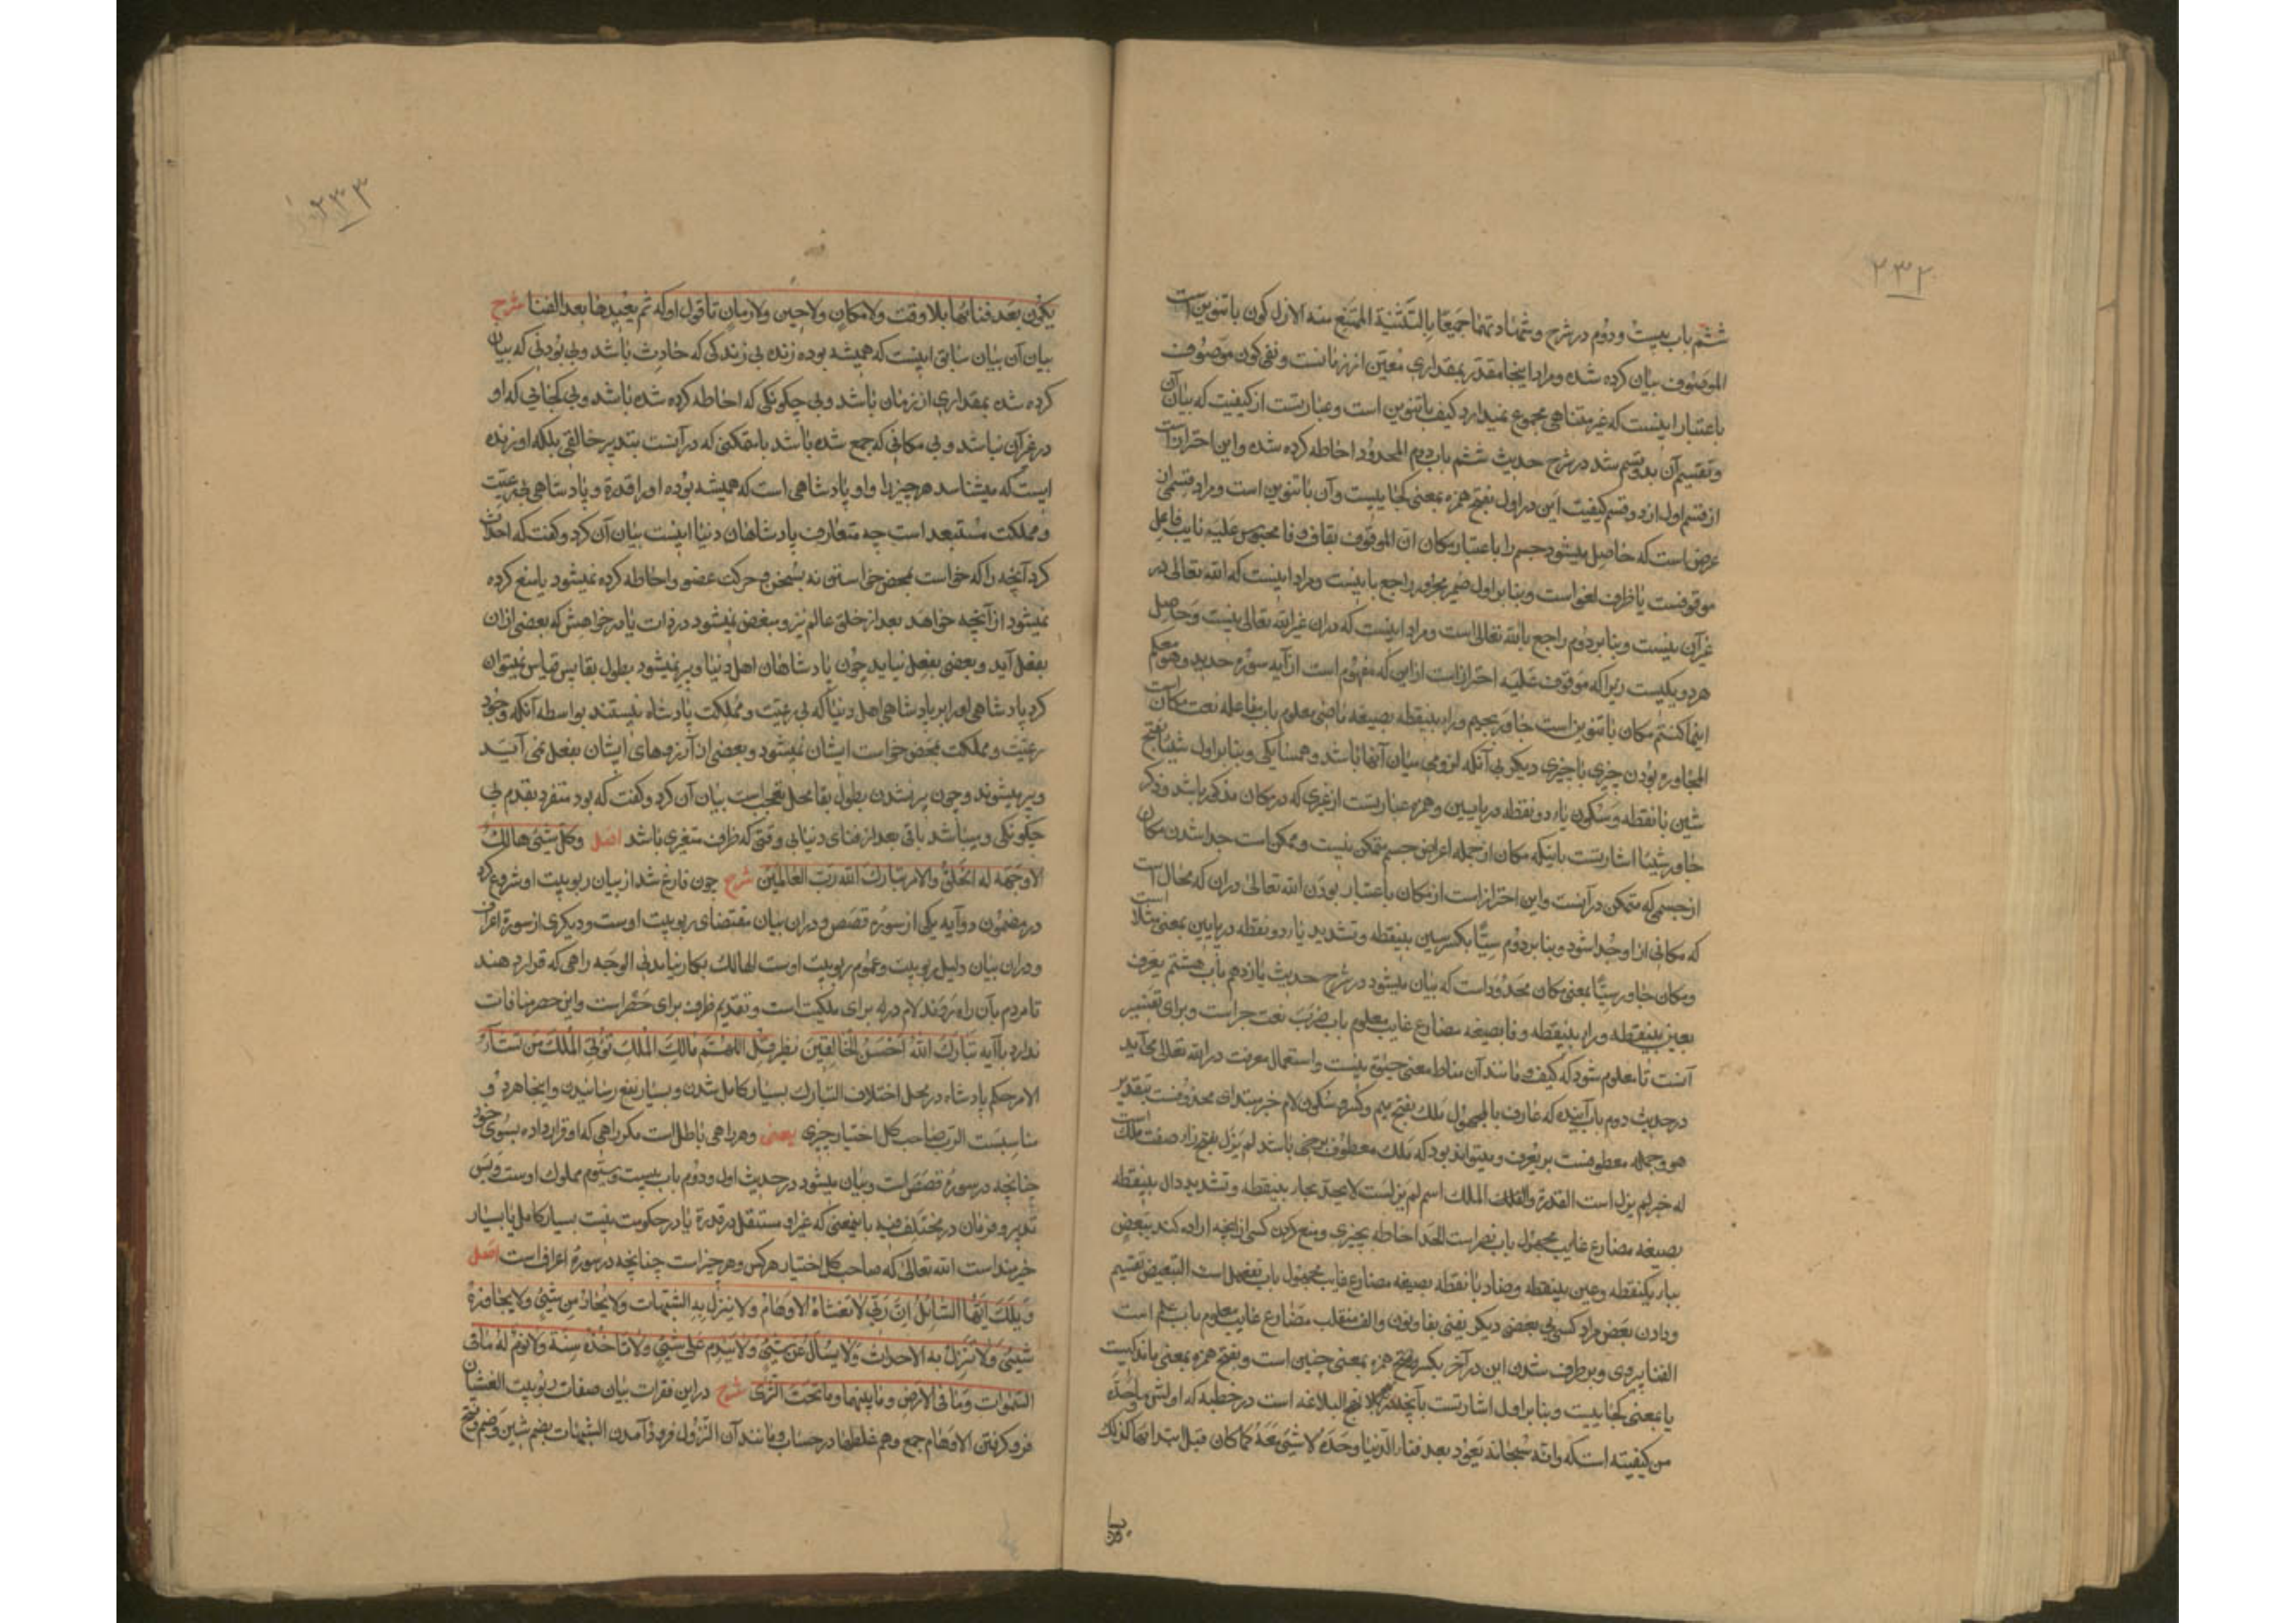 ۲۳۲
ششم باب بیست و دوم در شرح و شهادتهما جمیعا بالتثنیة الممتنع منه الازل کون باتنوین است
الموصوف بیان کرده شده و مراد اینجا مقدر بمقداری معین از زمانست و نفی کون موصوف
باعتبار اینست که غیر متناهی مجموع نمیدارد کیف باتنوین است و عبارتست از کیفیت که بیان آن
و تقسیم آن بدو قسم شد در شرح حدیث ششم باب دوم المحدود احاطه کرده شده و این احترازاست
از قسم اول از دو قسم کیفیت این در اول بفتح همزه بمعنی کجاییست و آن باتنوین است و مراد قسمی از
عرض است که حاصل میشود جسم را باعتبار مکان ان الموقوف بقاف و فا محبوس علیه نایب فاعل
موقوفست یا ظرف لغواست و بنا بر اول ضمیر مجرور راجع باینست و مراد اینست که الله تعالی در
غیر آن نیست و بنا بر دوم راجع بالله تعالی است و مراد اینست که در ان غیر الله تعالی نیست و حاصل
هر دو یکیست زیرا که موقوف علیه احترازاست از این که مفهوم است از آیه سوره حدید و هو معکم
اینما کنتم مکان باتنوین است جاور بجیم و راء بینقطه بصیغه ماضی معلوم باب مفاعله نعت مکان است
المجاوره بودن چیزی با چیزی دیگر بی آنکه لزومی میان آنها باشد و همسایگی و بنا بر اول شیئا بفتح
شین با نقطه و سکون یاء دو نقطه در پایین و همزه عبارتست از غیری که در مکان مذکور باشد و ذکر
جاور شیئا اشارتست باینکه مکان از جمله اعراض جسم متمکن نیست و ممکن است جدا شدن مکان
از جسمی که متمکن در آنست و این احترازاست از مکان باعتبار بودن الله تعالی در ان که محال است
که مکانی از او جدا شود و بنا بر دوم سیا بکسر سین بینقطه و تشدید یاء دو نقطه در پایین بمعنی مثلا است
و مکان جاور سیا بمعنی مکان محدوداست که بیان میشود در شرح حدیث یازدهم باب هشتم یعرف
بعین بینقطه و راء بینقطه و فا بصیغه مضارع غایب معلوم باب ضرب نعت جراست و برای تفسیر
آنست تا معلوم شود که کیف و مانند آن مناط معنی حیوة نیست و استعمال معرفت در الله تعالی می‌آید
در حدیث دوم باب آینده که عارف بالمجهول ملک بفتح میم و کسر و سکون لام خبر مبتدای محذوفست بتقدیر
هو و جمله معطوفست بر یعرف و میتواند بود که ملک معطوف بر حی باشد لم یزل بفتح زاء صفت ملک است
له خبر لم یزل است القدرة و الملک الملک اسم لم یزلست لا یحد بحاء بینقطه و تشدید دال بینقطه
بصیغه مضارع غایب مجهول باب نصر است الحد احاطه بچیزی و منع کردن کسی از آنچه اراده کند یبعض
بباء یکنقطه و عین بینقطه و ضاد با نقطه بصیغه مضارع غایب مجهول باب تفعیل است التبعیض تقسیم
و دادن بعض مراد کسی بی بعضی دیگر یفنی بفا و نون و الف منقلب مضارع غایب معلوم باب علم است
الفنا پروی و بر طرف شدن این در آخر بکسر و فتح همزه بمعنی چنین است و بفتح همزه بمعنی مانده کیست
یا بمعنی کجاییست و بنا بر اول اشارتست بآنچه در نهج البلاغه است در خطبه که اولش ما وحده
من کیفیته است که و انه سبحانه یعود بعد فناء الدنیا وحده لا شیء معه کما کان قبل ابتدائها کذلک
یکون
۲۳۳
یکون بعد فنائها بلا وقت و لا مکان و لا حین و لا زمان تا قول او که ثم یعیدها بعد الفنا شرح
بیان آن بیان سابق اینست که همیشه بوده زنده بی زندگی که حادث باشد و بی بودنی که بیان
کرده شده بمقداری از زمان باشد و بی چگونگی که احاطه کرده شده باشد و بی کجائی که او
در غیر آن نباشد و بی مکانی که جمع شده باشد با متمکنی که در آنست بتدبیر خالقی بلکه او زنده
ایست که میشناسد هر چیز را و او پادشاهی است که همیشه بوده او را قدرة و پادشاهی بی رعیت
و مملکت مستبعد است چه متعارف پادشاهان دنیا اینست بیان آن کرد و گفت که احداث
کرد آنچه را که خواست بمحض خواستن نه بسخن و حرکت عضو و احاطه کرده نمیشود یا منع کرده
نمیشود از آنچه خواهد بعد از خلق عالم نیز و مبعض نمیشود در ذات یا در خواهش که بعضی از ان
بفعل آید و بعضی بفعل نیاید چون پادشاهان اهل دنیا و پیر نمیشود بطول بقا پس قیاس نمیتوان
کرد پادشاهی او را بر پادشاهی اهل دنیا که بی رعیت و مملکت پادشاه نیستند بواسطه آنکه وجود
رعیت و مملکت بمحض خواست ایشان نمیشود و بعضی از آرزوهای ایشان بفعل نمی آید
و پیر میشوند و چون پیر نشدن بطول بقا محل تعجب است بیان آن کرد و گفت که بود متفرد بقدم بی
چگونگی و میباشد باقی بعد از فنای دنیا بی وقتی که ظرف متغیری باشد اصل و کل شیء هالک
الا وجهه له الخلق و الامر تبارک الله رب العالمین شرح چون فارغ شد از بیان ربوبیت او شروع کرد
در مضمون دو آیه یکی از سوره قصص و در ان بیان مقتضای ربوبیت اوست و دیگری از سورة اعراف
و در ان بیان دلیل ربوبیت و عموم ربوبیت اوست الهالک بکار نیامدنی الوجه راهی که قرار دهند
تا مردم بآن راه روند لام در له برای ملکیت است و تقدیم ظرف برای حصر است و این حصر منافات
ندارد با آیه تبارک الله احسن الخالقین نظیر قل اللهم مالک الملک تؤتی الملک من تشاء
الامر حکم پادشاه در محل اختلاف التبارک بسیار کامل شدن و بسیار نفع رسانیدن و اینجا هر دو
مناسبست الرب صاحب کل اختیار چیزی یعنی و هر راهی باطل است مگر راهی که او قرار داده بسوی خود
چنانچه در سورة قصص است و بیان میشود در حدیث اول و دوم باب بیست و سوم مملوک اوست و بس
تدبیر و فرمان در مختلف فیه باینمعنی که غیر او مستقل در قدرة یا در حکومت نیست بسیار کامل یا بسیار
خیرمند است الله تعالی که صاحب کل اختیار هر کس و هر چیز است چنانچه در سورة اعراف است اصل
ویلک ایها السائل ان ربی لا تغشاه الاوهام و لا ینزل به الشبهات و لا یحاذ من شیء و لا یجاوزه
شیء و لا ینزل به الاحداث و لا یسأل عن شیء و لا یندم علی شیء و لا تاخذه سنة و لا نوم له ما فی
السموات و ما فی الارض و ما بینهما و ما تحت الثری شرح در این فقرات بیان صفات ربوبیت الغشیان
فرو گرفتن الاوهام جمع وهم غلطها در حساب و مانند آن النزول فرود آمدن الشبهات بضم شین و ضم و فتح